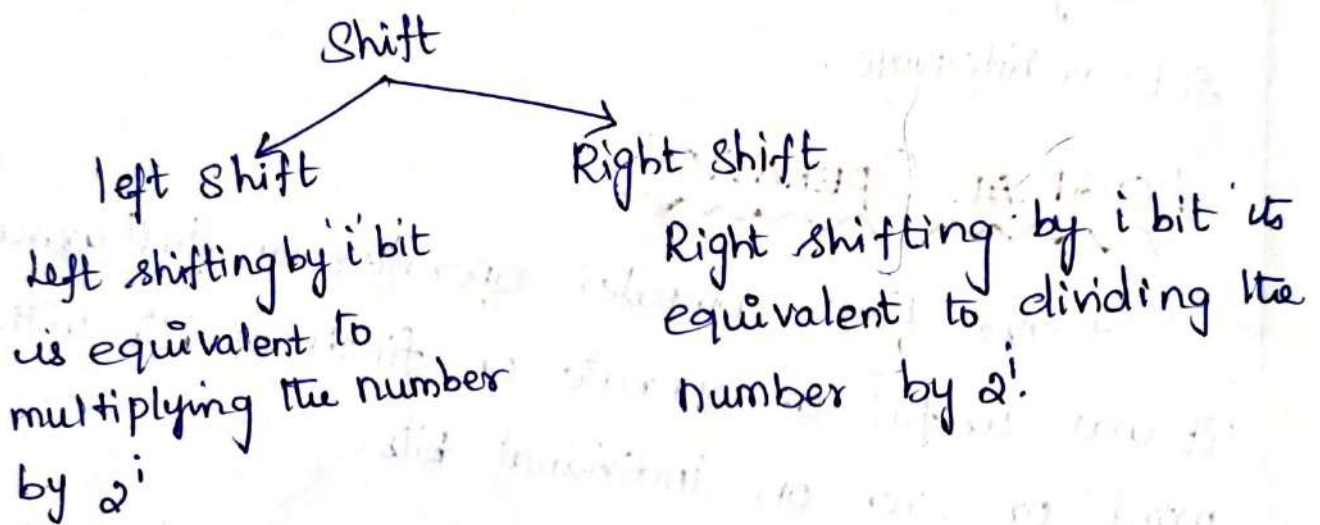 Shift
left shift
Left shifting by 'i' bit
is equivalent to
multiplying the number
by 2^i
Right shift
Right shifting by i bit is
equivalent to dividing the
number by 2^i.